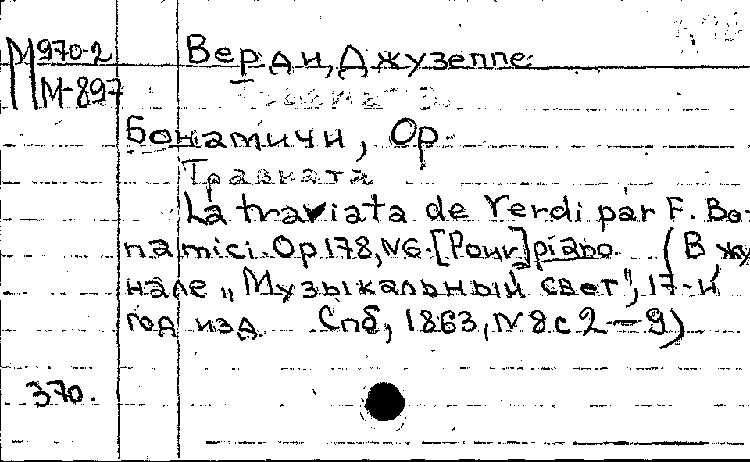 М970-2 Верди, Джузеппе
М-897
Бонамичи, Ор.
Травиата
La traviata de Verdi par F. Bo-
namici. Op.178, N6. [Pour] piano. (В жу
нале „Музыкальный свет", 17-й
год изд. Спб, 1863, N8 с 2-9)
370.